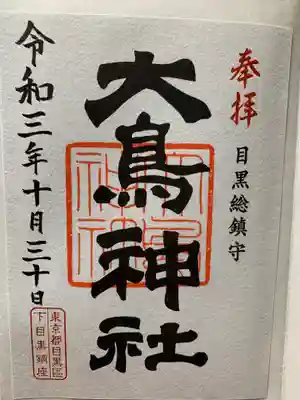 奉拝
目黒総鎮守
大鳥神社
令和三年十月三十日
東京都目黒區
下目黒鎮座